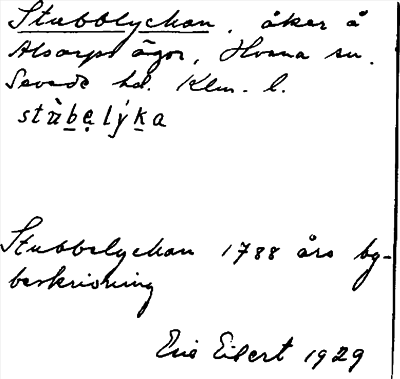 Stubblyckan, åker å
Alsarps ägor, Hvena sn.
Sevede hd. Klm. l.
stùbelýka
Stubbelyckan 1788 års by-
beskrivning
Eric Eilert 1929